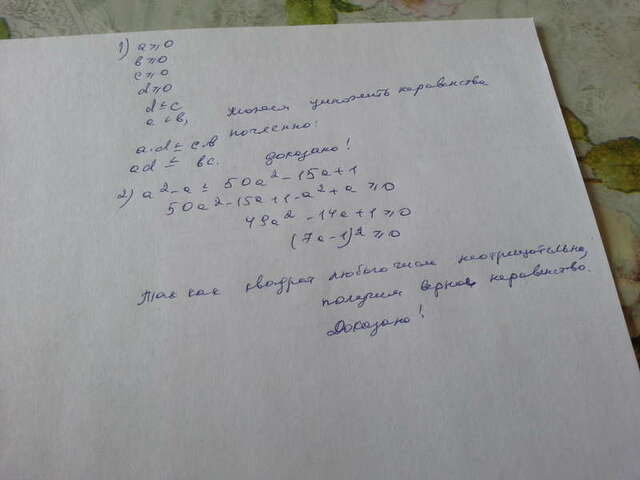 1) a ⩾ 0
в ⩾ 0
c ⩾ 0
d ⩾ 0
d ≤ c
a < в, можем умножить неравенства
почленно:
a·d ≤ c·в
ad ≤ вc. Доказано!
2) a² - a ≤ 50a² - 15a + 1
50a² - 15a + 1 - a² + a ⩾ 0
49a² - 14a + 1 ⩾ 0
(7a - 1)² ⩾ 0
Так как квадрат любого числа неотрицательно,
получим верное неравенство.
Доказано!